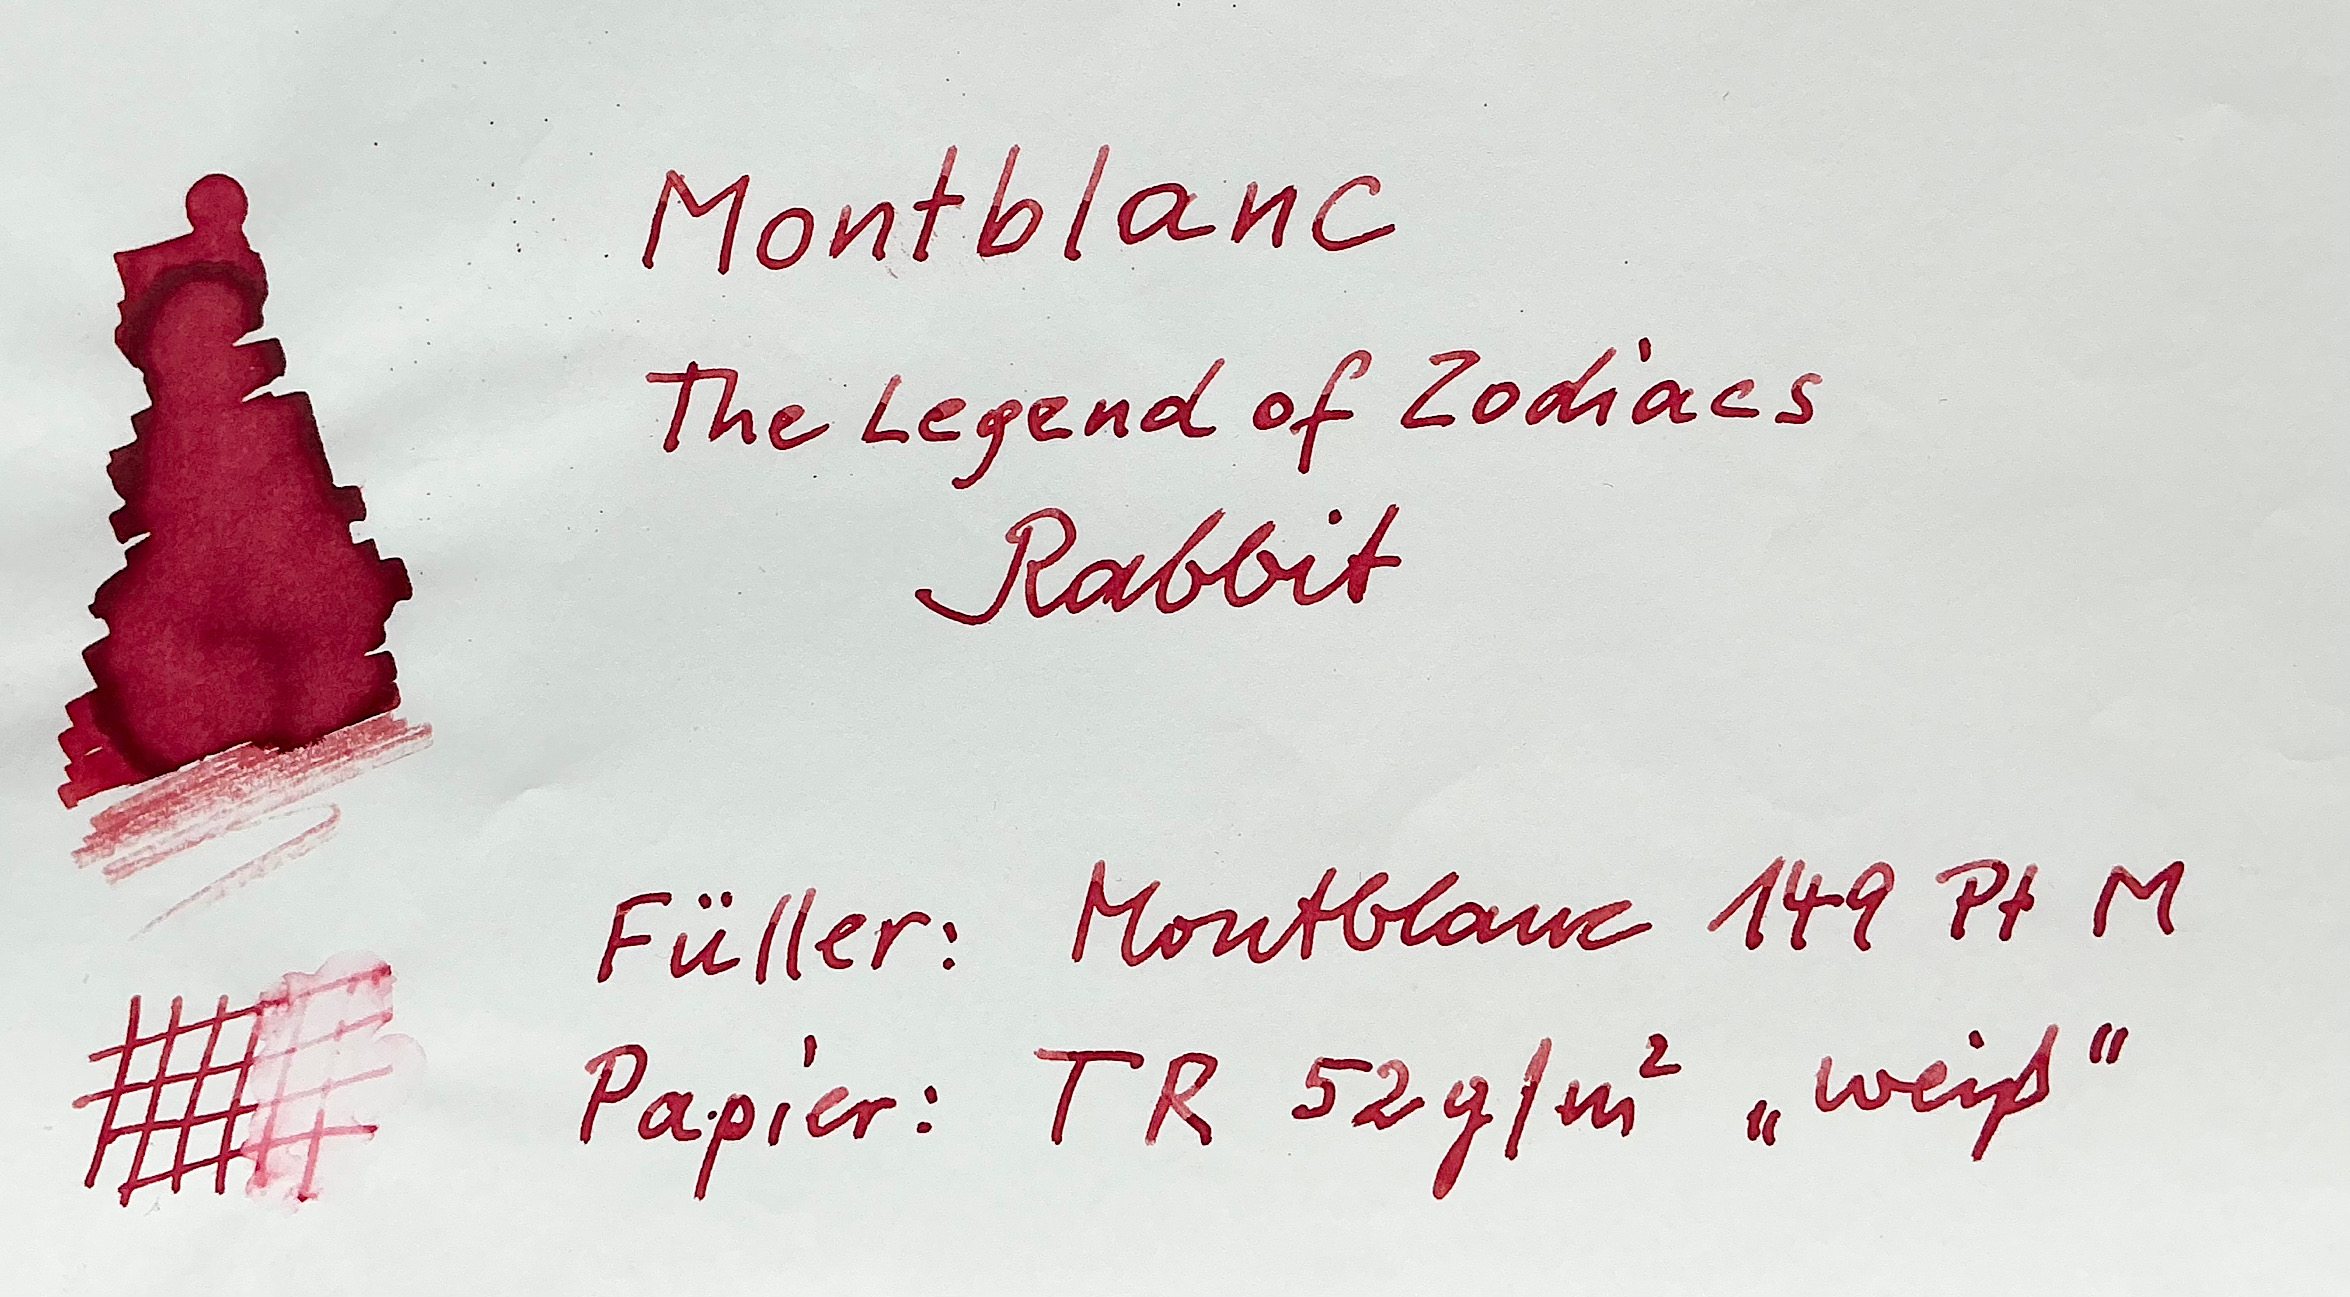 Montblanc
The Legend of Zodiacs
Rabbit
Füller: Montblanc 149 Pt M
Papier: TR 52g/m² „weiß“